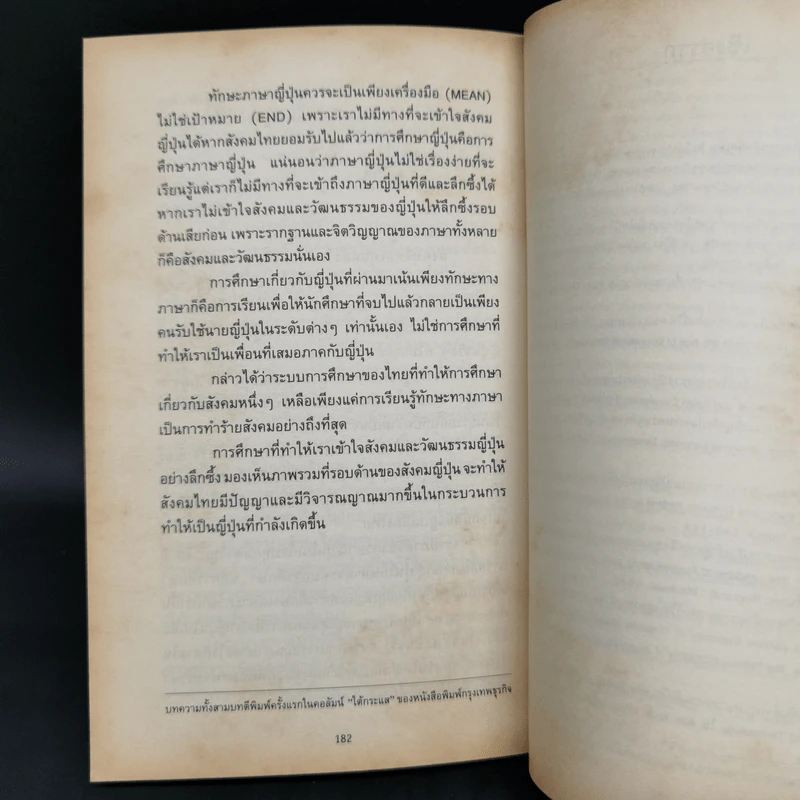 ทักษะภาษาญี่ปุ่นควรจะเป็นเพียงเครื่องมือ (MEAN)
ไม่ใช่เป้าหมาย (END) เพราะเราไม่มีทางที่จะเข้าใจสังคม
ญี่ปุ่นได้หากสังคมไทยยอมรับไปแล้วว่าการศึกษาญี่ปุ่นคือการ
ศึกษาภาษาญี่ปุ่น แน่นอนว่าภาษาญี่ปุ่นไม่ใช่เรื่องง่ายที่จะ
เรียนรู้แต่เราก็ไม่มีทางที่จะเข้าถึงภาษาญี่ปุ่นที่ดีและลึกซึ้งได้
หากเราไม่เข้าใจสังคมและวัฒนธรรมของญี่ปุ่นให้ลึกซึ้งรอบ
ด้านเสียก่อน เพราะรากฐานและจิตวิญญาณของภาษาทั้งหลาย
ก็คือสังคมและวัฒนธรรมนั่นเอง
การศึกษาเกี่ยวกับญี่ปุ่นที่ผ่านมาเน้นเพียงทักษะทาง
ภาษาก็คือการเรียนเพื่อให้นักศึกษาที่จบไปแล้วกลายเป็นเพียง
คนรับใช้นายญี่ปุ่นในระดับต่างๆ เท่านั้นเอง ไม่ใช่การศึกษาที่
ทำให้เราเป็นเพื่อนที่เสมอภาคกับญี่ปุ่น
กล่าวได้ว่าระบบการศึกษาของไทยที่ทำให้การศึกษา
เกี่ยวกับสังคมหนึ่งๆ เหลือเพียงแค่การเรียนรู้ทักษะทางภาษา
เป็นการทำร้ายสังคมอย่างถึงที่สุด
การศึกษาที่ทำให้เราเข้าใจสังคมและวัฒนธรรมญี่ปุ่น
อย่างลึกซึ้ง มองเห็นภาพรวมที่รอบด้านของสังคมญี่ปุ่น จะทำให้
สังคมไทยมีปัญญาและมีวิจารณญาณมากขึ้นในกระบวนการ
ทำให้เป็นญี่ปุ่นที่กำลังเกิดขึ้น
บทความทั้งสามบทตีพิมพ์ครั้งแรกในคอลัมน์ "ใต้กระแส" ของหนังสือพิมพ์กรุงเทพธุรกิจ
182